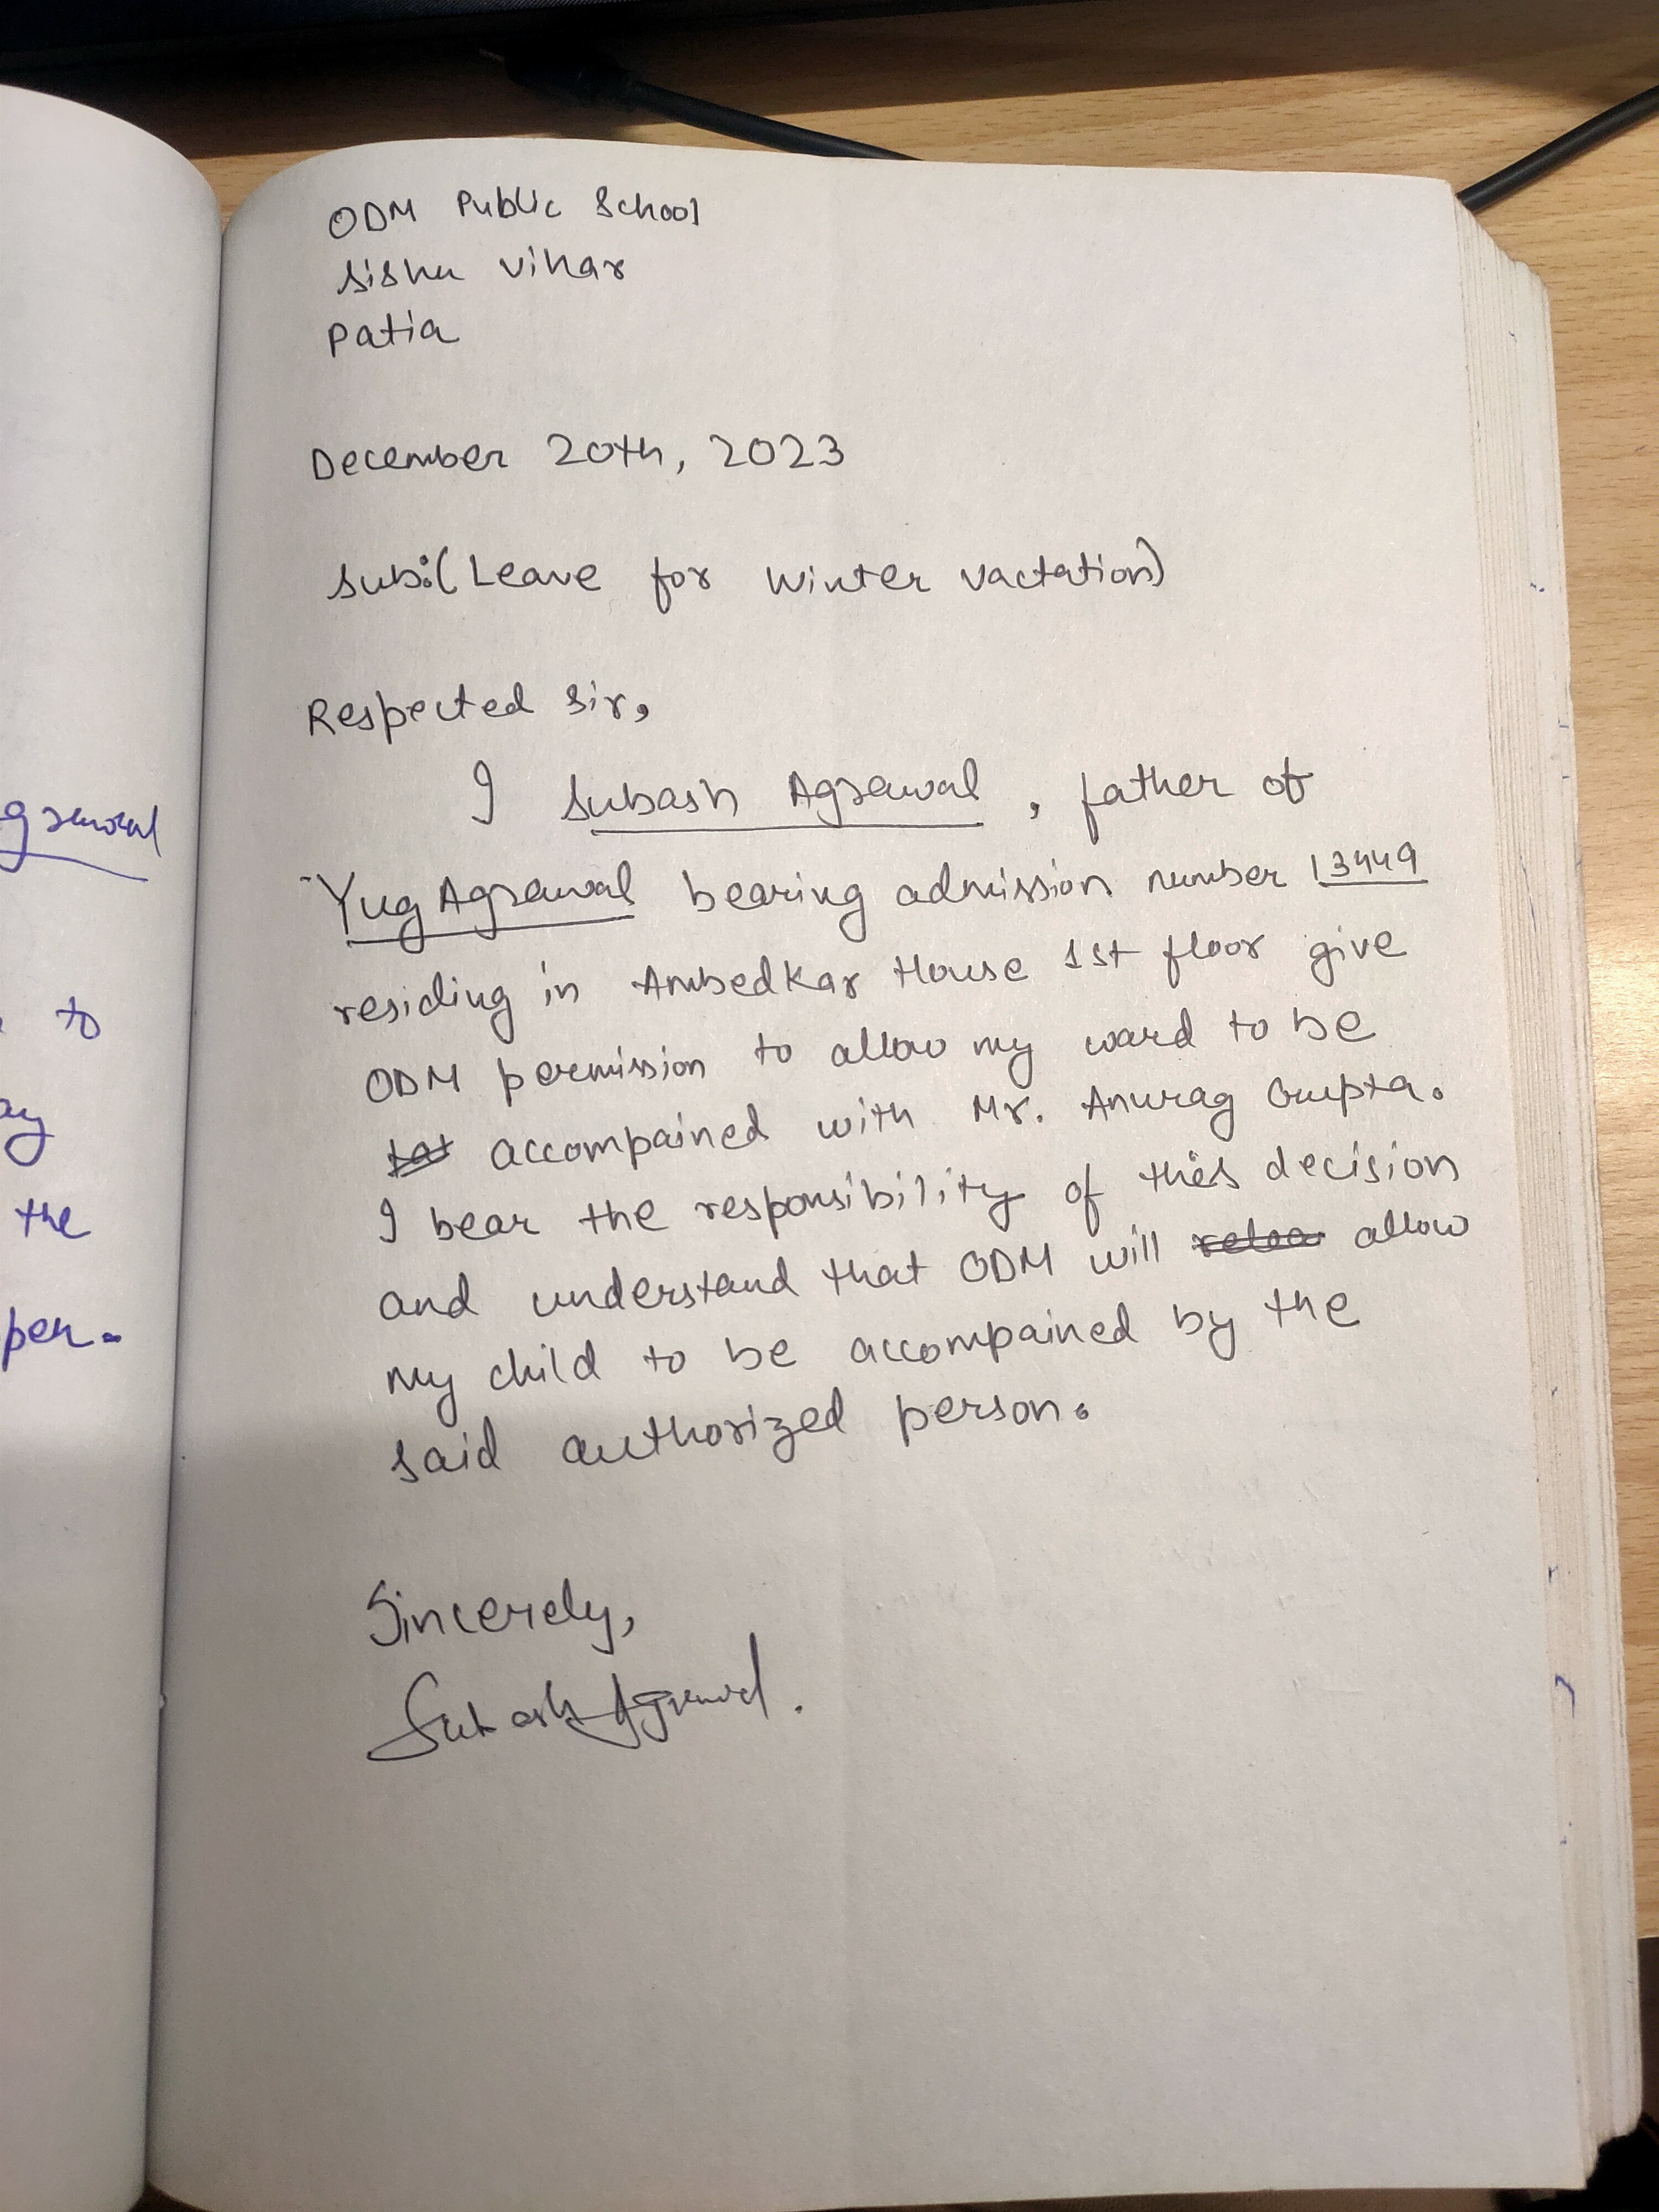 ODM Public School
Sishu Vihar
Patia
December 20th, 2023
Sub:(Leave for Winter Vactation)
Respected Sir,
I Subash Agrawal, father of
Yug Agrawal bearing admission number 13449
residing in Ambedkar House 1st floor give
ODM permission to allow my ward to be
accompained with Mr. Anurag Gupta.
I bear the responsibility of this decision
and understand that ODM will allow
my child to be accompained by the
said authorized person.
Sincerely,
Subash Agrawal.
to
the